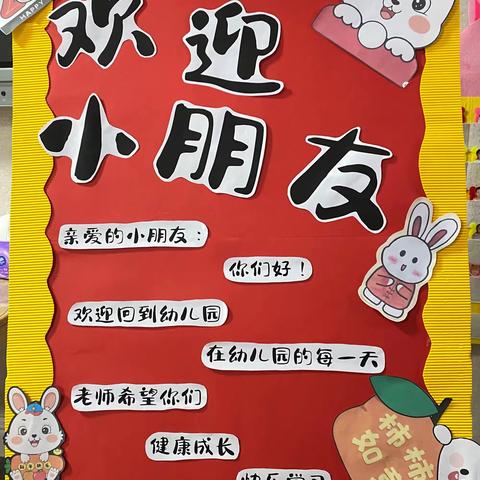 HAPPY
欢迎
小朋友
亲爱的小朋友：
你们好！
欢迎回到幼儿园
在幼儿园的每一天
老师希望你们
健康成长
快乐学习
柿柿
如意